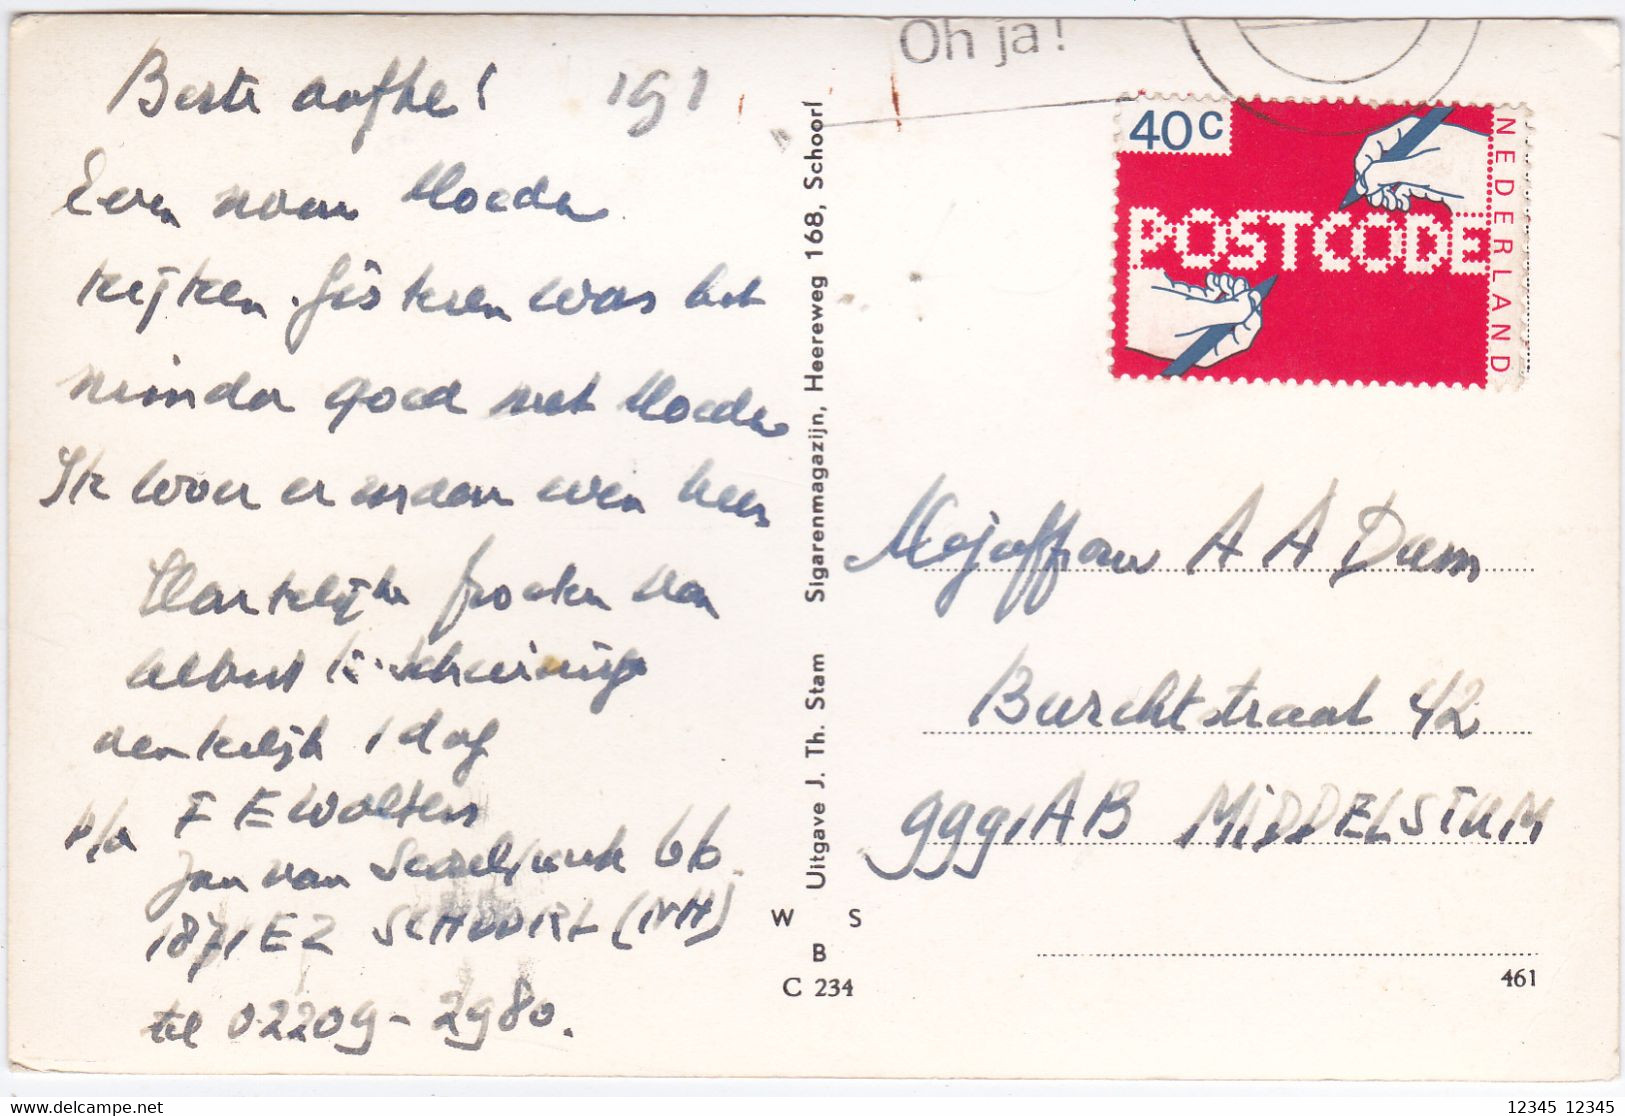 Beste aafke!
Even naar Moeder
kijken. Gisteren was het
minder goed met Moeder
Ik woer er maar even heen
Hartelijke groeten van
Albert K. Scheuninge
denkelijk 1 dag
p/a F E Wolters
Jan van 66
1871 EZ SCHOORL (NH)
tel 02209-2980.
Oh ja!
40c
POSTCODE
NEDERLAND
Uitgave J. Th. Stam Sigarenmagazijn, Heereweg 168, Schoorl
Mejuffrou A A Dam
Burchtstraat 42
9991 AB MIDDELSTUM
W S
B
C 234
461
12345 12345